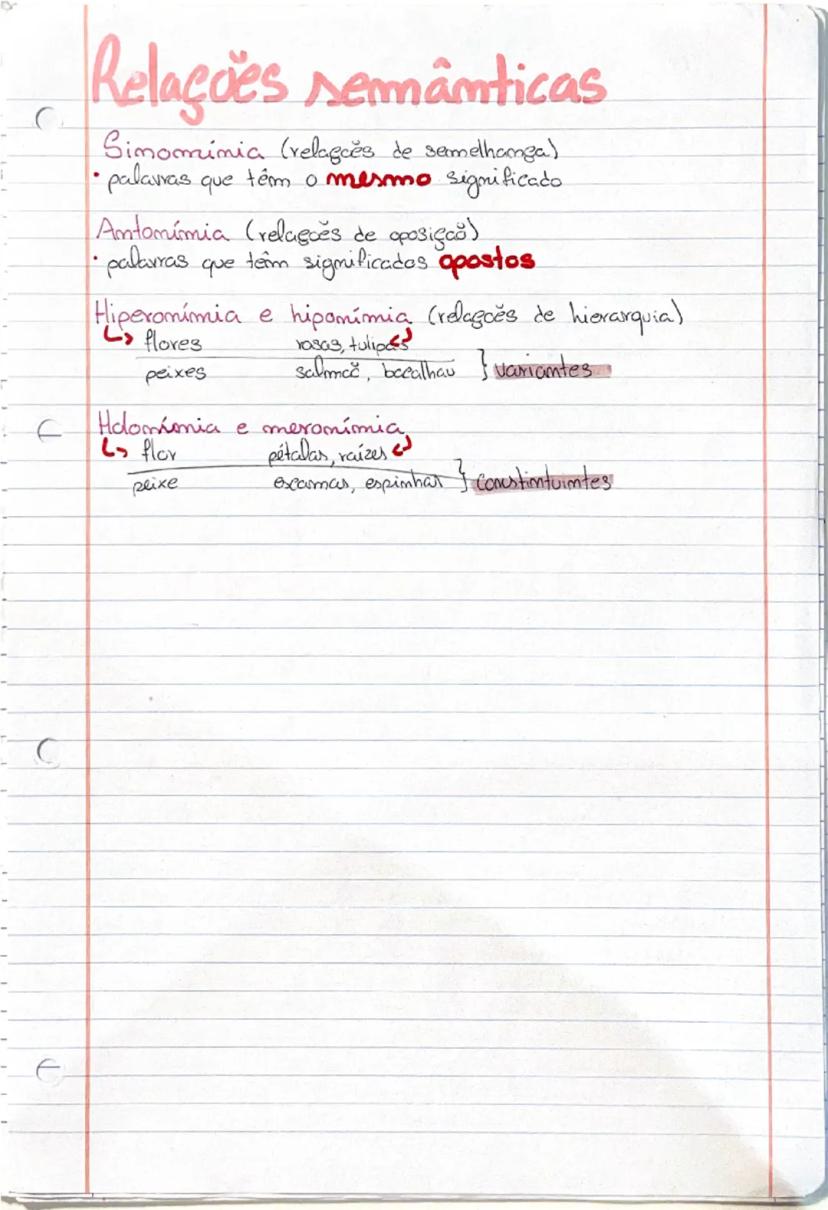 Relações semânticas
Sinonímia (relações de semelhança)
• palavras que têm o mesmo significado
Antonímia (relações de oposição)
• palavras que têm significados opostos
Hiperonímia e hiponímia (relações de hierarquia)
↳ flores rosas, tulipas ↲
peixes salmão, bacalhau } variantes
Holonímia e meronímia
↳ flor pétalas, raízes ↲
peixe escamas, espinhas } constintuintes